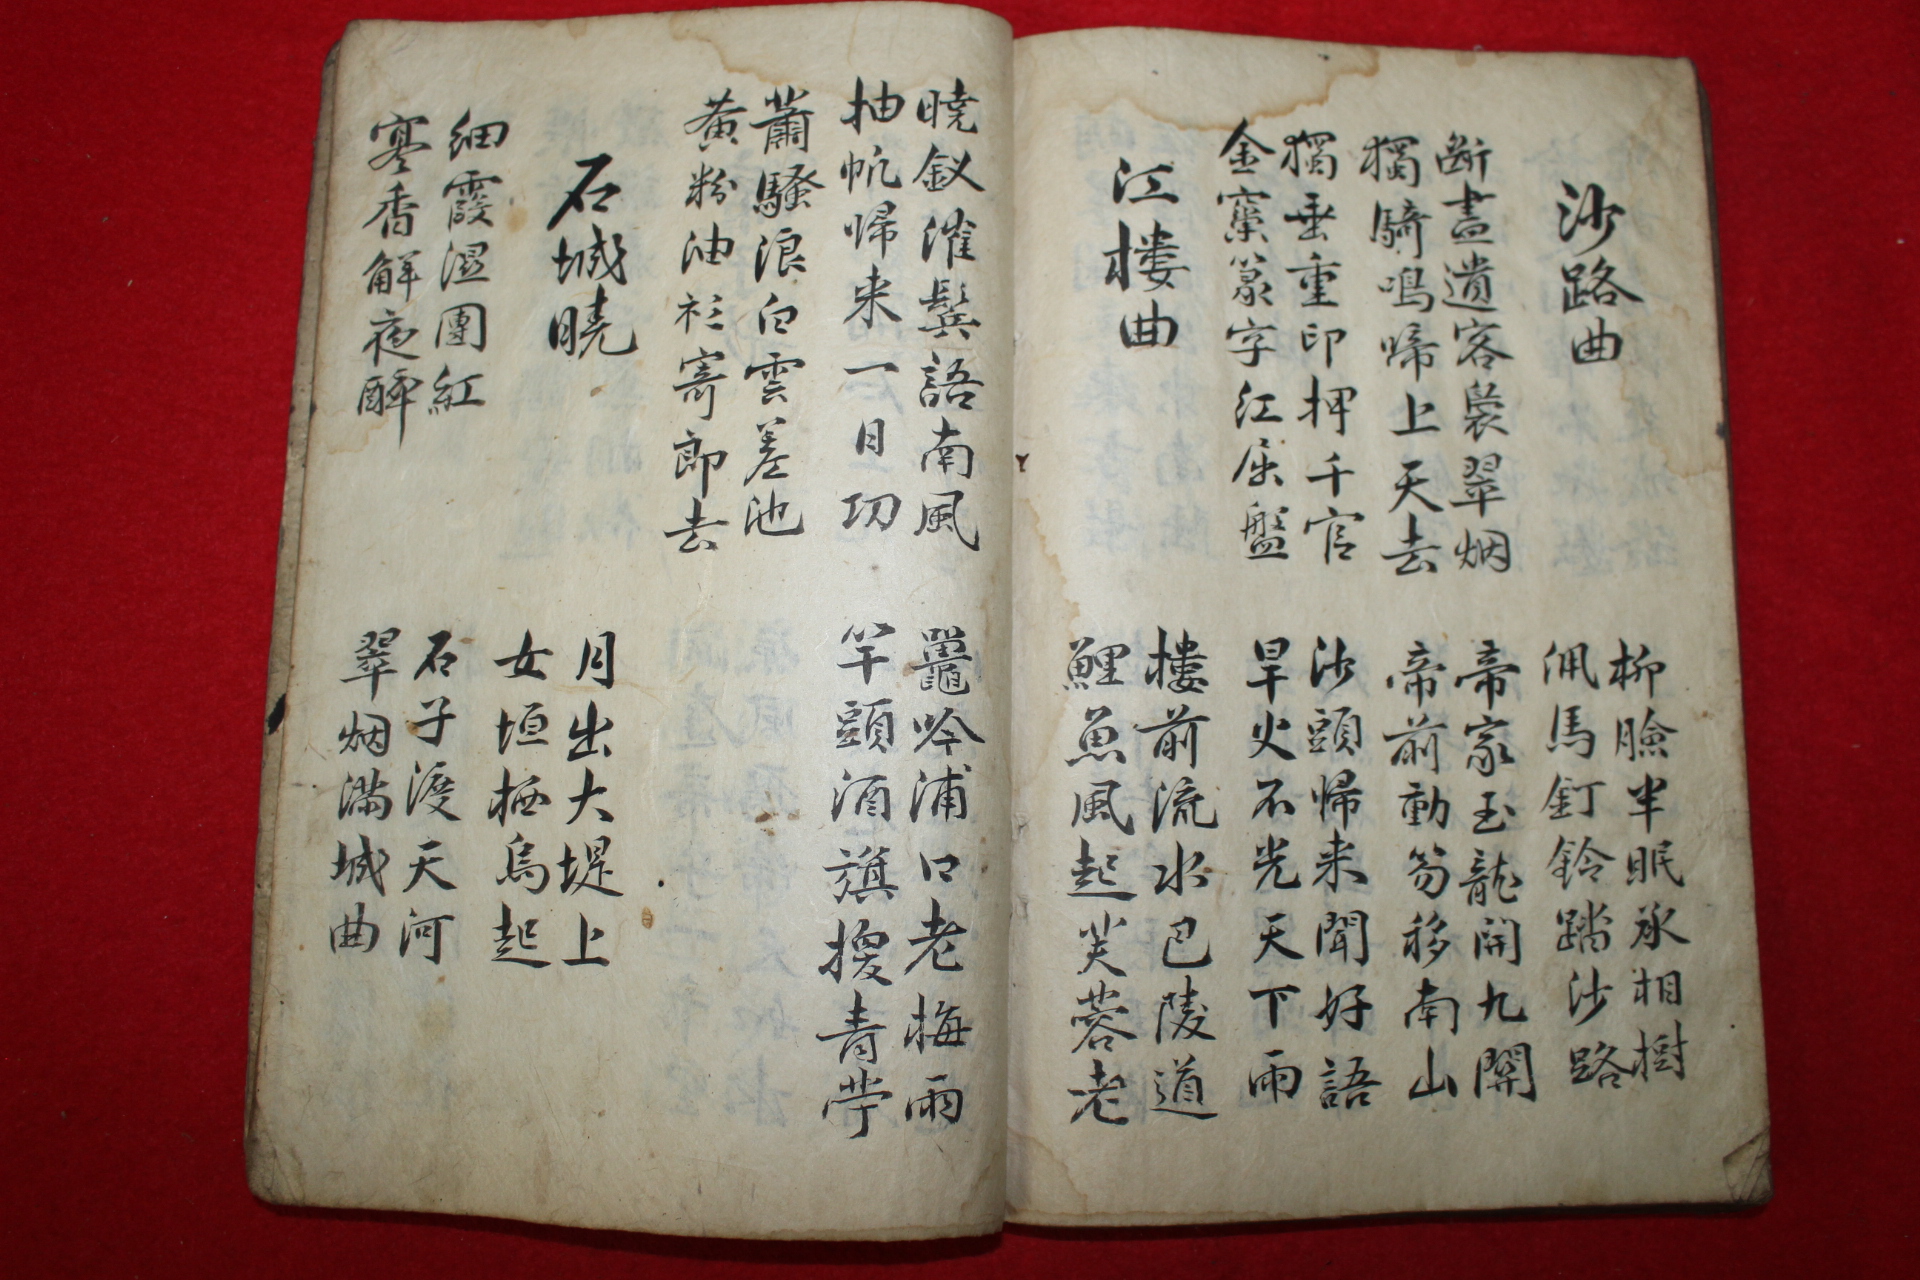 沙路曲
柳臉半眠丞相樹
佩馬釘鈴踏沙路
斷盡遺客裊翠烟
獨騎鳴啼上天去
帝家玉龍開九關
帝前動笏移南山
獨垂重印押千官
金窠篆字江屈盤
沙頭歸来聞好語
旱火不光天下雨
江樓曲
樓前流水巴陵道
鯉魚風起芙蓉老
曉釵催鬢語南風
抽帆歸来一日功
鼉吟浦口老梅雨
竿頭酒旗換青苧
蕭騷浪白雲差池
黄粉油衫寄郎去
石城曉
月出大堤上
女垣栖烏起
細霞濕團紅
寒香解夜醉
石子渡天河
翠烟滿城曲